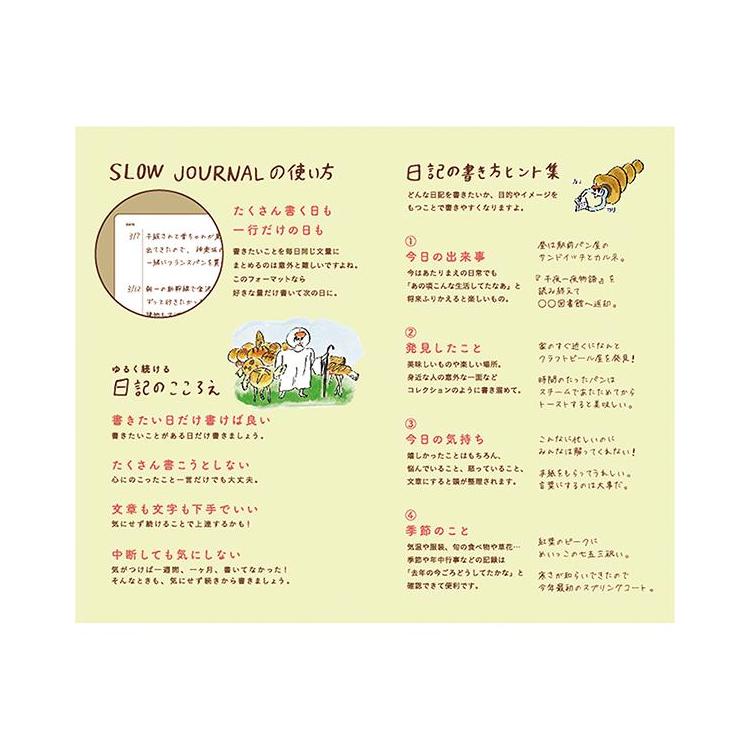 SLOW JOURNALの使い方
3/7
3/12
たくさん書く日も
一行だけの日も
書きたいことを毎日同じ文量に
まとめるのは意外と難しいですよね。
このフォーマットなら
好きな量だけ書いて次の日に。
ゆるく続ける
日記のこころえ
書きたい日だけ書けば良い
書きたいことがある日だけ書きましょう。
たくさん書こうとしない
心にのこったこと一言だけでも大丈夫。
文章も文字も下手でいい
気にせず続けることで上達するかも!
中断しても気にしない
気がつけば一週間、一ヶ月、書いてなかった!
そんなときも、気にせず続きから書きましょう。
日記の書き方ヒント集
どんな日記を書きたいか、目的やイメージを
もつことで書きやすくなりますよ。
①
今日の出来事
今はあたりまえの日常でも
「あの頃こんな生活してたなあ」と
将来ふりかえると楽しいもの。
昼は駅前パン屋の
サンドイッチとカルネ。
『千夜一夜物語』を
読み終えて
〇〇図書館へ返却。
②
発見したこと
美味しいものや楽しい場所。
身近な人の意外な一面など
コレクションのように書き溜めて。
家のすぐ近くになんと
クラフトビール屋を発見!
時間のたったパンは
スチームであたためてから
トーストすると美味しい。
③
今日の気持ち
嬉しかったことはもちろん、
悩んでいること、怒っていること、
文章にすると頭が整理されます。
こんなに忙しいのに
みんなは解ってくれない!
手紙をもらってうれしい。
言葉にするのは大事だ。
④
季節のこと
気温や服装、旬の食べ物や草花…
季節や年中行事などの記録は
「去年の今ごろどうしてたかな」と
確認できて便利です。
紅葉のピークに
めいっこの七五三祝い。
寒さが和らいできたので
今年最初のスプリングコート。